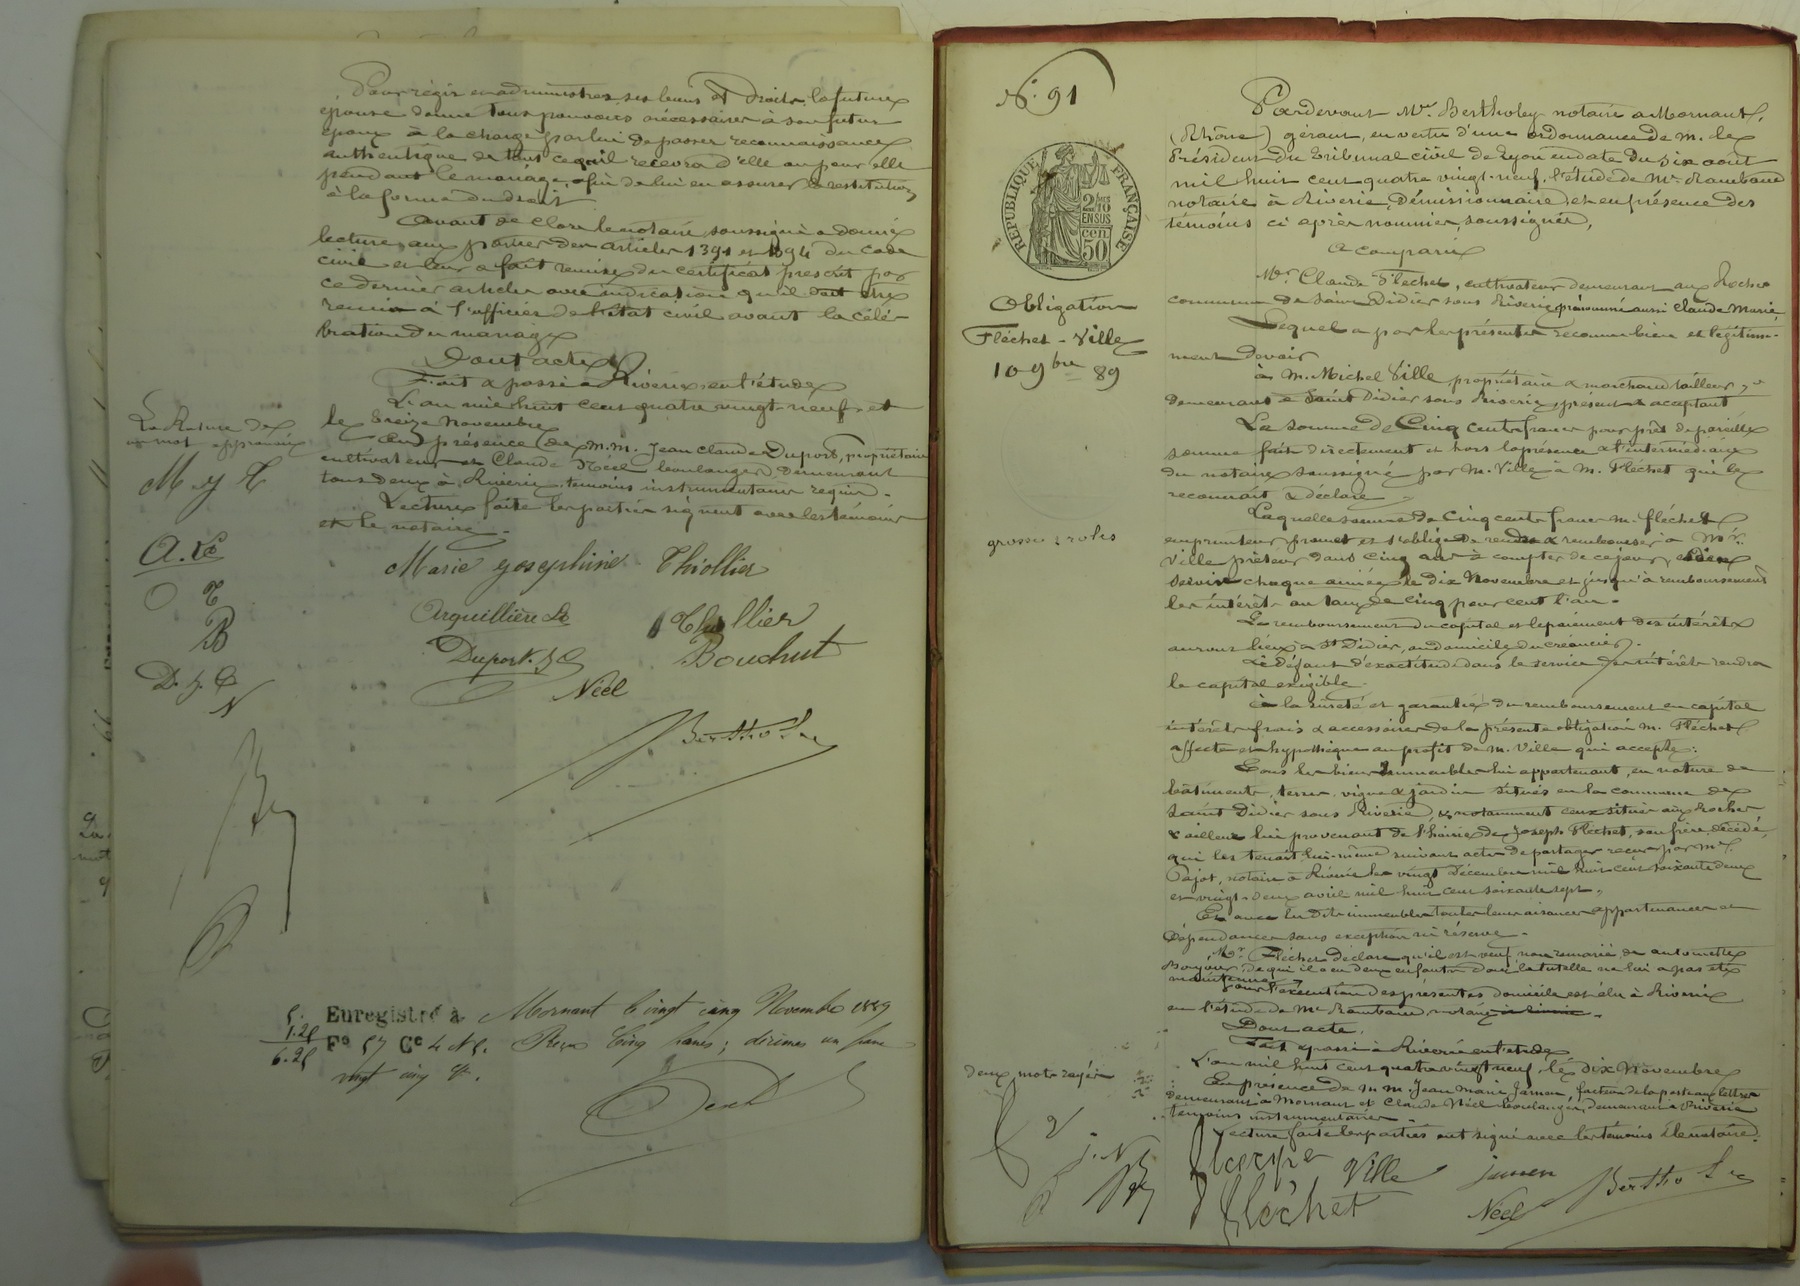 Pour régir et administrer ses biens et Droits la future
épouse donne tous pouvoirs nécessaires à son futur
époux à la charge par lui de passer reconnaissance
authentique de tout ce qu'il recevra d'elle ou pour elle
pendant le mariage, afin de lui en assurer la restitution
à la forme du droit
Avant de clore le notaire soussigné a donné
lecture aux parties des articles 1391 et 1394 du Code
civil et leur a fait remise du certificat prescrit par
ce dernier article avec indication qu'il doit être
remis à l'officier de l'état civil avant la célé-
bration du mariage
Dont acte
Fait & passé à Riverie en l'étude
L'an mil huit cent quatre vingt-neuf et
le treize Novembre
En présence de M.M. Jean Claude Duport, propriétaire
cultivateur et Claude Néel boulanger, demeurant
tous deux à Riverie, témoins instrumentaires requis.
Lecture faite les parties signent avec les témoins
et le notaire.
La Rature de
un mot approuvée
M J T
A. Lse
T
B
D. J. C
N
Marie Josephine Thiollier
Arquillière Ls Thollier
Duport. J C Bouchut
Néel
Bertholey
Enregistré à Mornant le vingt cinq Novembre 1889
Fo 57 Ce 4 Reçu Cinq francs; décimes un franc
vingt cinq c.
5.
1.25
6.25
No. 91
RÉPUBLIQUE FRANÇAISE
2/10
EN SUS
50 cen
Obligation
Fléchet - Ville
10 9bre 89
grosse 2 roles
Pardevant Me. Bertholey notaire à Mornant,
(Rhône) gérant, en vertu d'une ordonnance de M. le
Président du Tribunal civil de Lyon en date du six août
mil huit cent quatre vingt-neuf, l'étude de Me. Rambaud
notaire à Riverie, Démissionnaire, et en présence des
témoins ci après nommés, soussignés,
A comparu
Mr. Claude Fléchet, cultivateur demeurant aux Roches
commune de Saint Didier sous Riverie, prénommé aussi Claude Marie,
Lequel a par les présentes reconnu bien et légitime-
ment devoir
à M. Michel Ville propriétaire & marchand tailleur,
demeurant à Saint Didier sous Riverie, présent & acceptant
La somme de Cinq cents francs pour prêt de pareille
somme fait directement et hors la présence & l'intermédiaire
du notaire soussigné par M. Ville à M. Fléchet qui le
reconnait & déclare
Laquelle somme de Cinq cents francs M. Fléchet
emprunteur promet et s'oblige de rendre & rembourser à Mr.
Ville prêteur dans cinq ans à compter de ce jour, et d'en
servir chaque année, le dix Novembre et jusqu'à remboursement
les intérêts au taux de cinq pour cent l'an.
Le remboursement du capital et le paiement des intérêts
auront lieu à St Didier, au domicile du créancier.
Le défaut d'exactitude dans le service des intérêts rendra
le capital exigible.
À la sûreté et garantie du remboursement en capital
intérêts frais & accessoires de la présente obligation M. Fléchet
affecte et hypothèque au profit de M. Ville qui accepte:
Tous les biens immeubles lui appartenant, en nature de
bâtiments, terres, vigne & jardin situés en la commune de
Saint Didier sous Riverie, & notamment ceux situés aux Roches
& ailleurs lui provenant de l'hoirie de Joseph Fléchet, son frère décédé,
qui les tenait lui-même suivant actes de partages reçus par Me.
Pajot, notaire à Riverie les vingt Décembre mil huit cent soixante deux
et vingt-deux avril mil huit cent soixante sept.
Et avec les dits immeubles toutes leurs aisances appartenances et
dépendances sans exception ni réserve.
Mr. Fléchet déclare qu'il est veuf, non remarié de antoinette
Bonjour, de qui il a eu deux enfants dont la tutelle ne lui a pas été
maintenue
Pour l'exécution des présentes domicile est élu à Riverie
en l'étude de Me Rambaud, notaire à Riverie.
Dont acte,
Fait & passé à Riverie en l'étude
L'an mil huit cent quatre vingt neuf, le dix Novembre
En présence de MM. Jean Marie Jamen, facteur de la poste aux lettres
demeurant à Mornant et Claude Néel boulanger, demeurant à Riverie
témoins instrumentaires
Lecture faite les parties ont signé avec les témoins & le notaire.
deux mots rayés
J. N
Fléchet Ville Jamen Bertholey
Néel